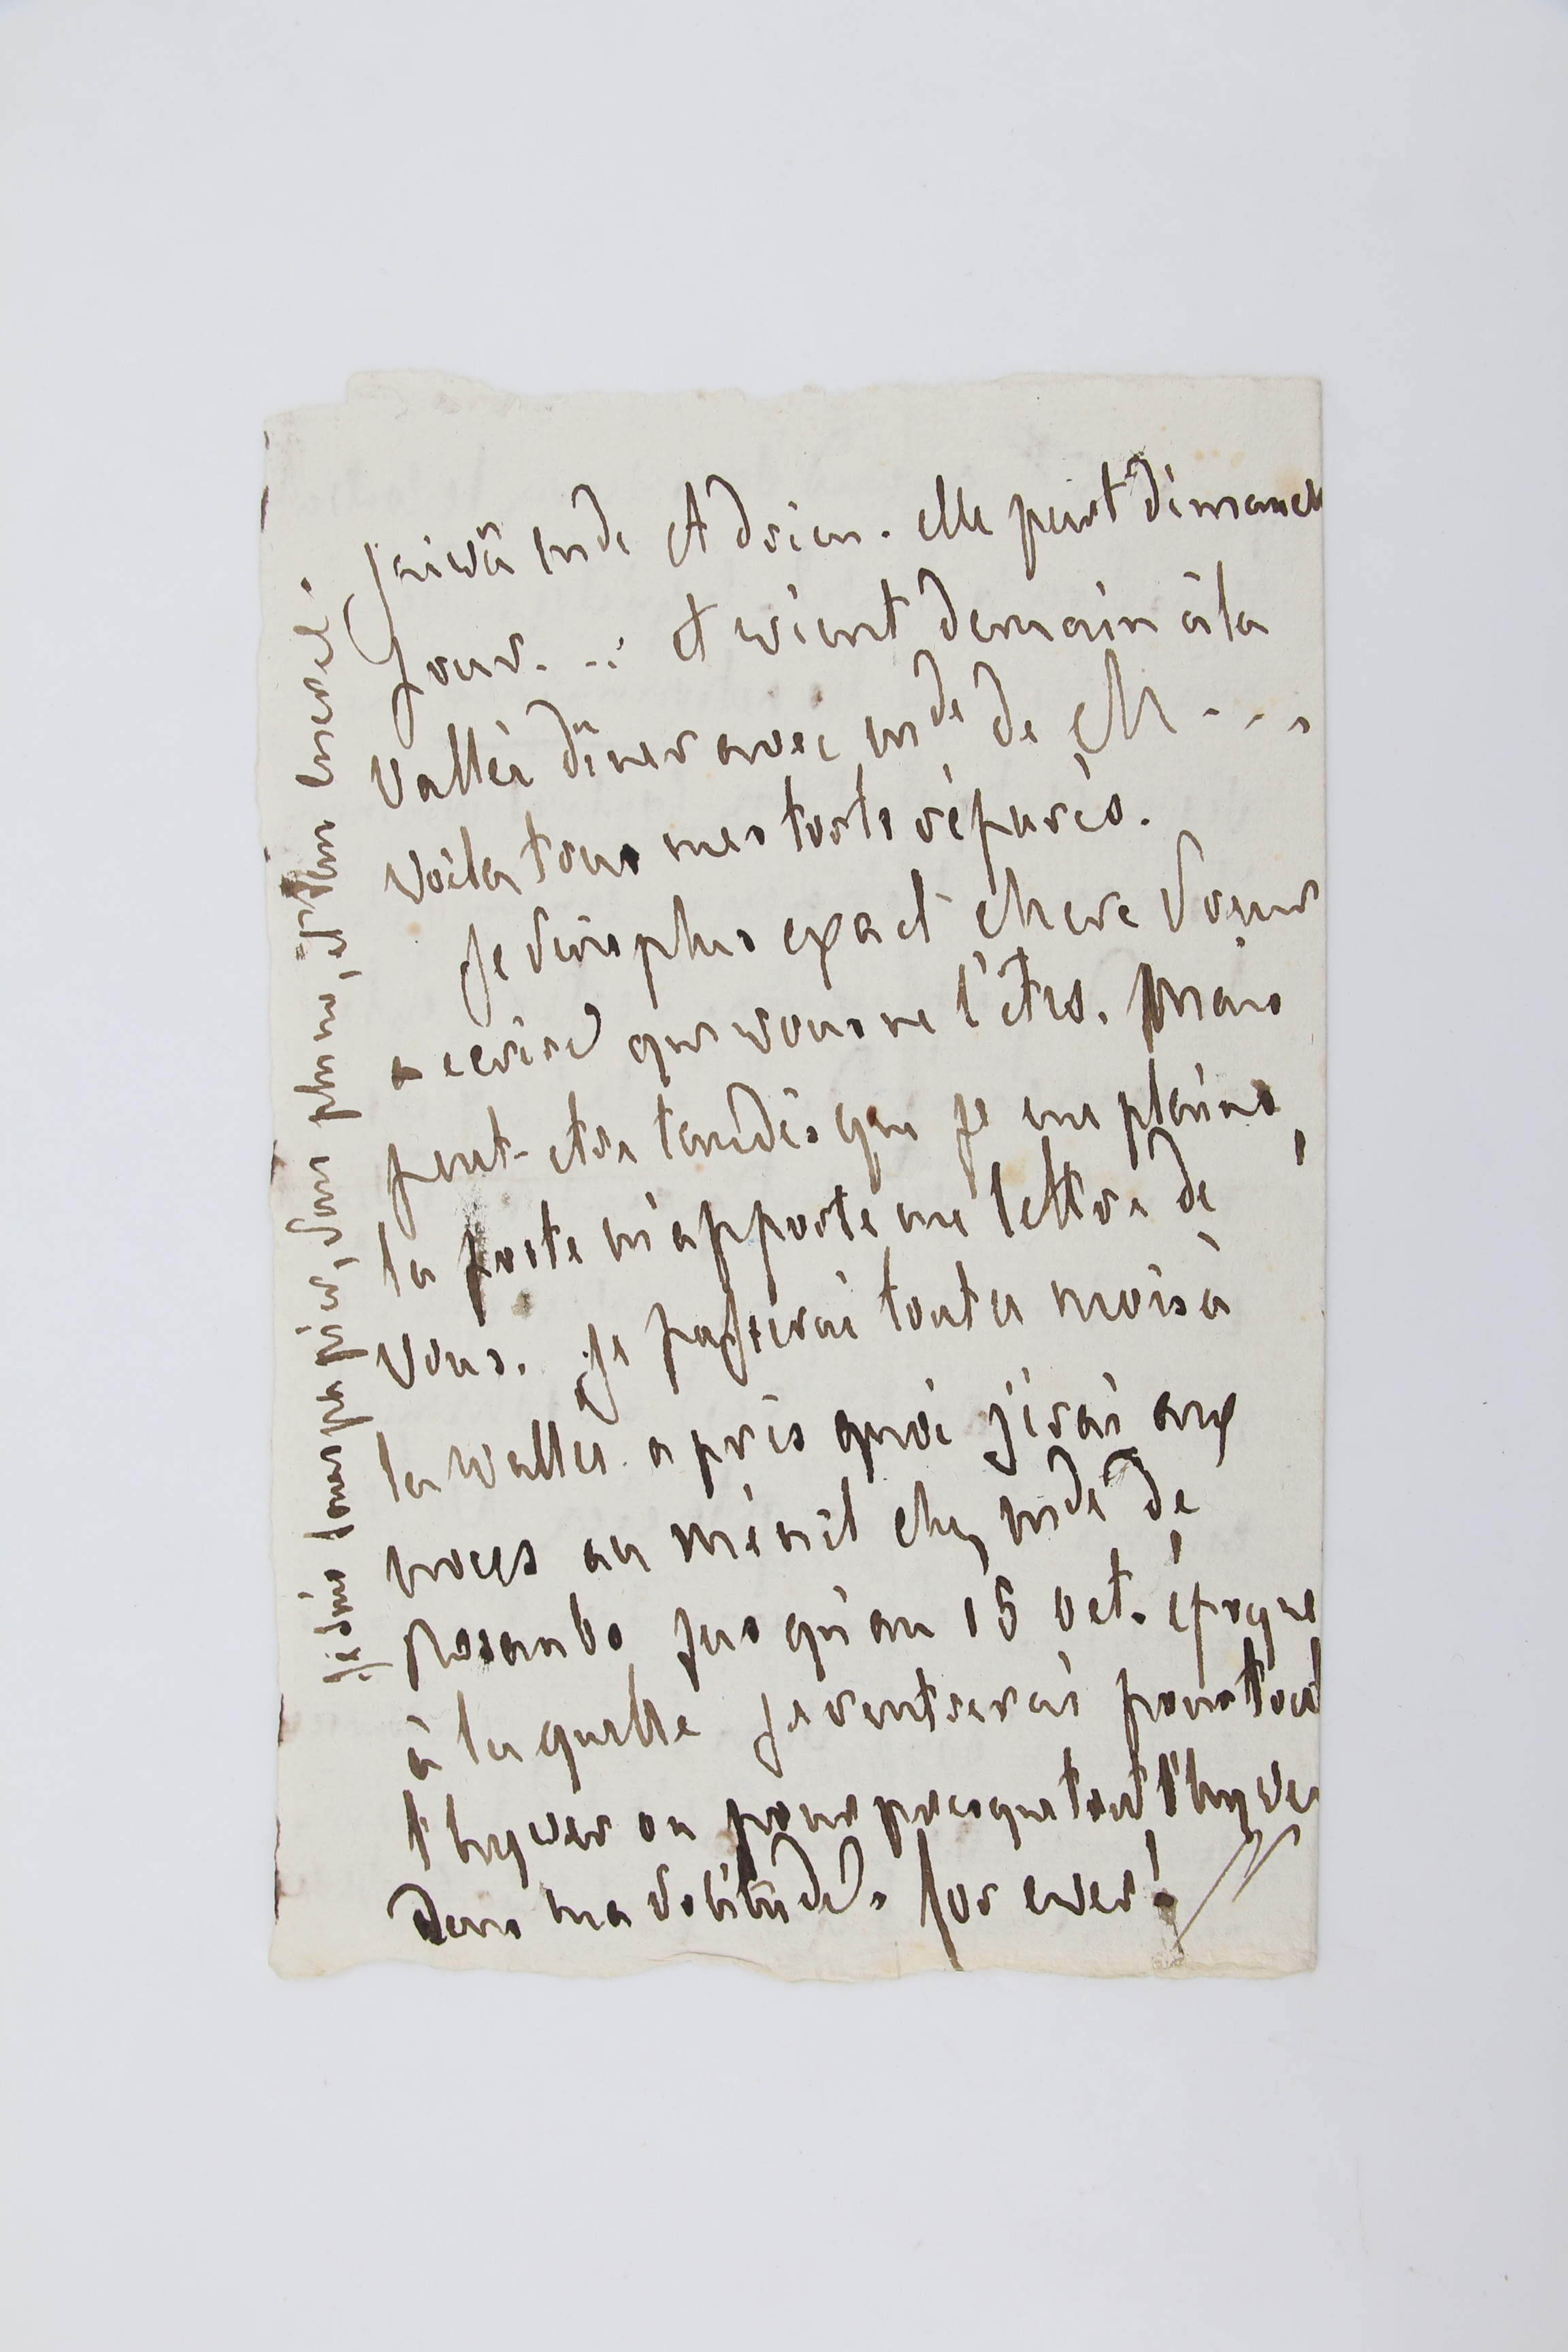 J'ai vû mde Adrien. elle part dimanch
pour. ... et vient demain à la
vallée dîner avec mde de M - - -
voila tous mes torts réparés.
Je suis plus exact chere sœur
a ecrire que vous ne l'êtes. mais
peut-etre tandis que je me plains,
la poste m'apporte une lettre de
vous. Je passerai tout ce mois à
la vallée. après quoi j'irai aux
noces au ménil chez mde de
Rosambo jusqu'au 15 oct. époque
à laquelle je rentrerai pour tout
l'hyver ou pour presque tout l'hyver
dans ma solitude. for ever!
Je suis sans papier, sans plume, et sans